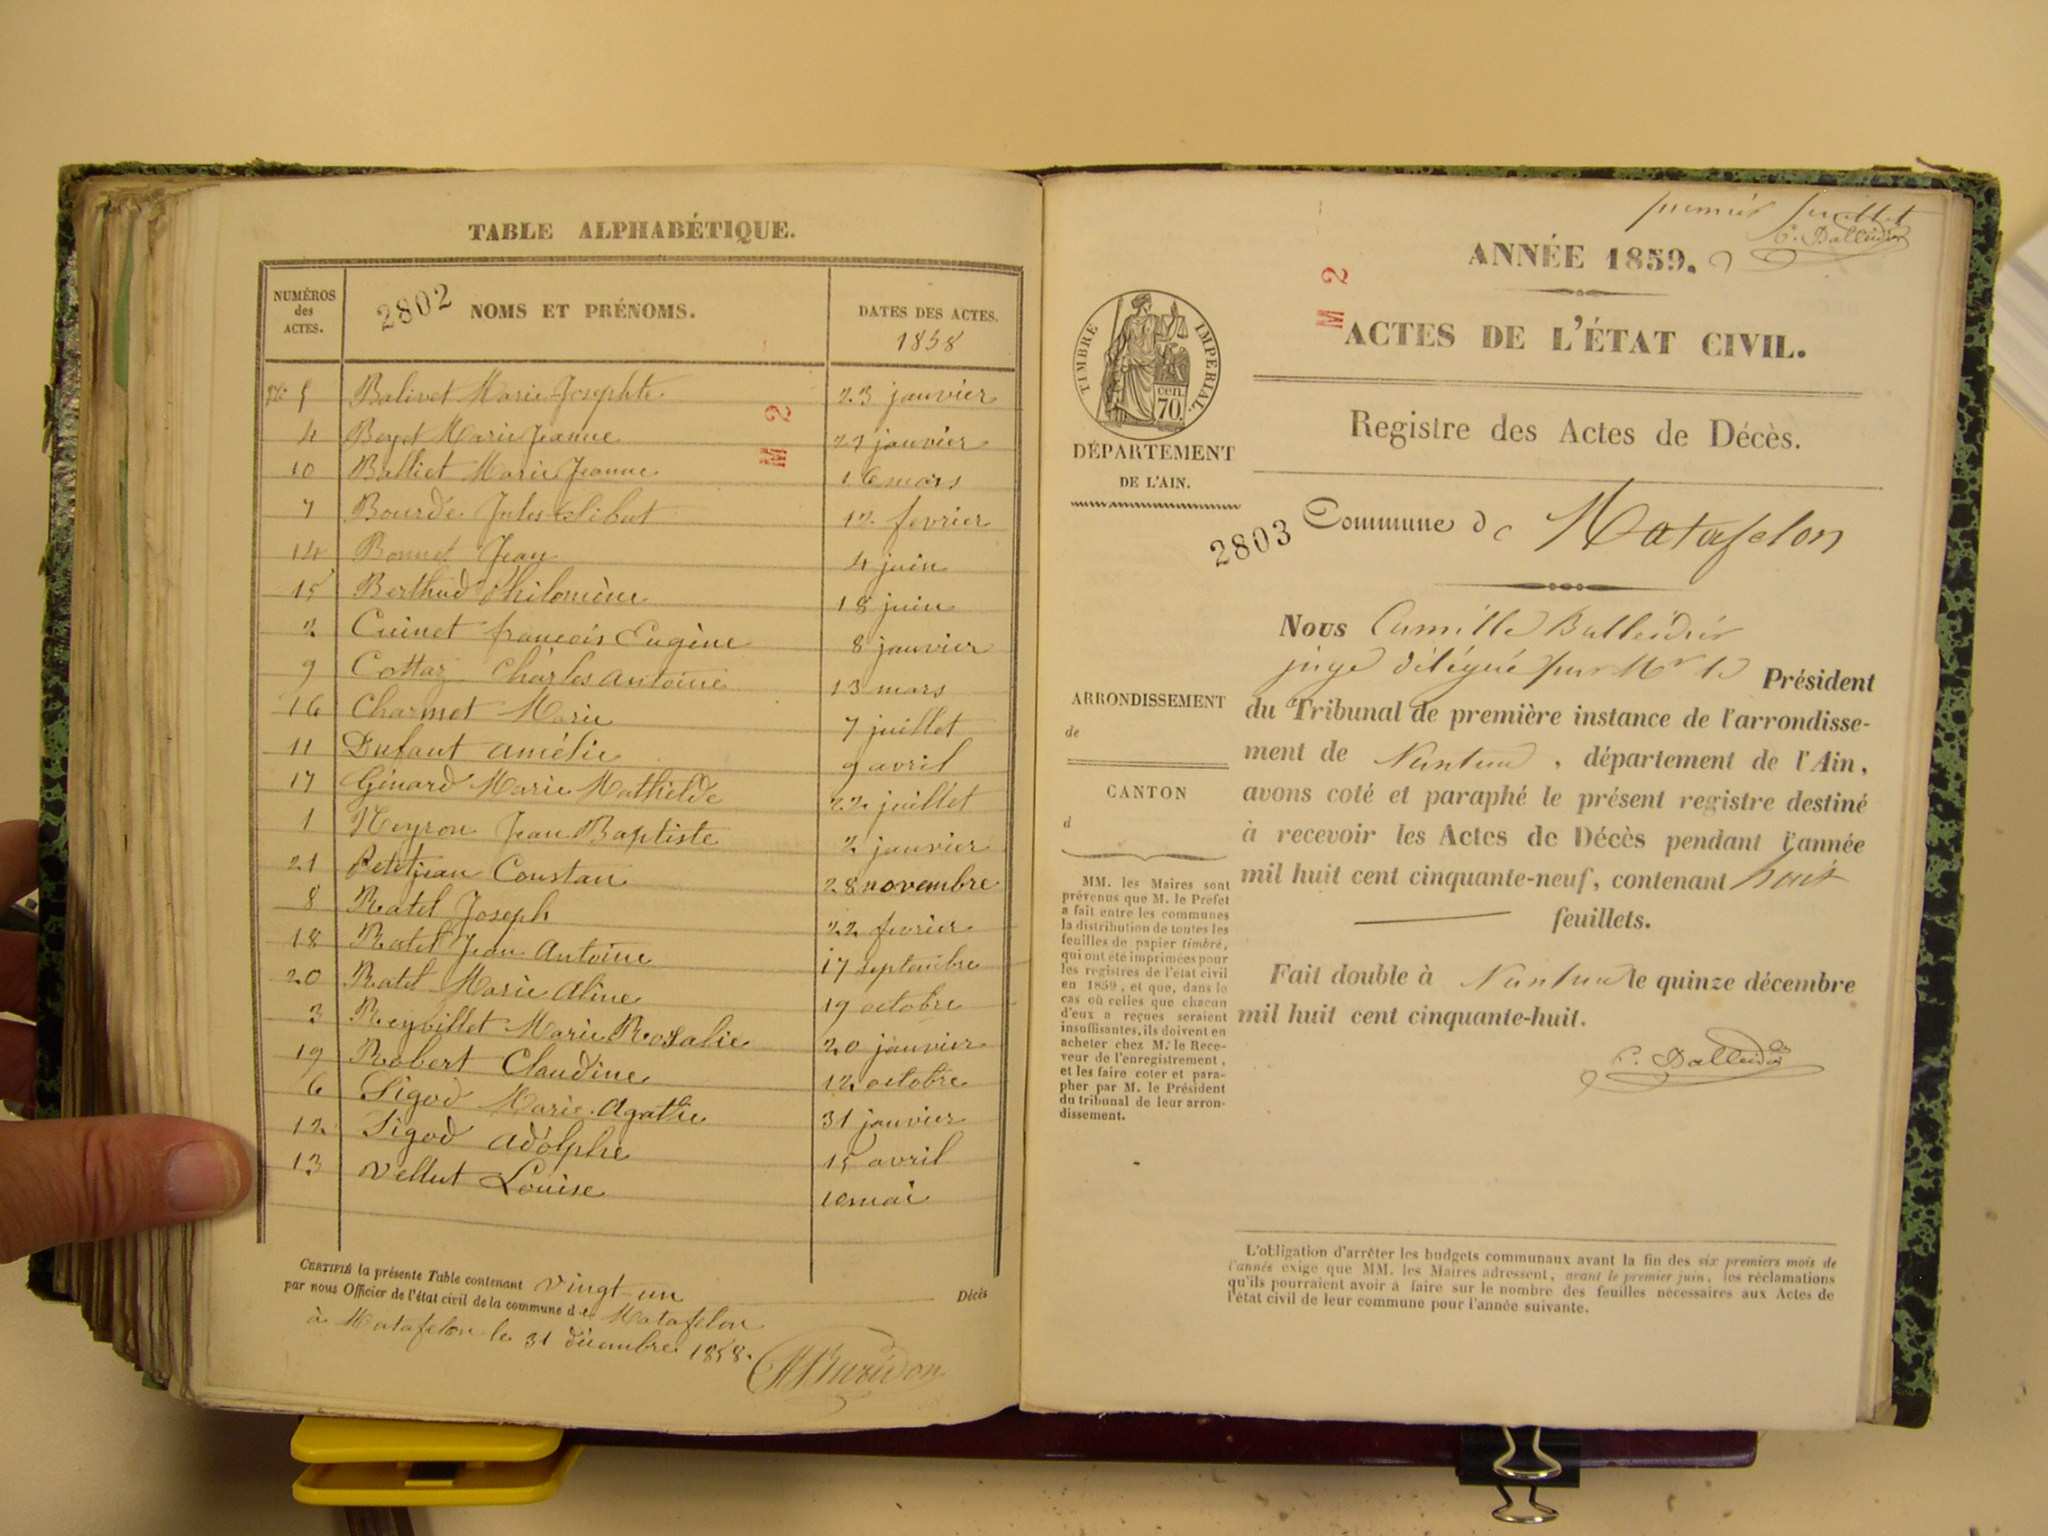 TABLE ALPHABÉTIQUE.
NUMÉROS
des
ACTES.
2802 NOMS ET PRÉNOMS.
DATES DES ACTES.
1858
No 5 Balivet Marie Josephte 23 janvier
4 Beyet Marie Jeanne 21 janvier
10 Balliet Marie Jeanne 16 mars
7 Bourde Jules 12 fevrier
14 Bonnet Jean 4 juin
15 Berthod Philomène 18 juin
2 Cuinet françois Eugène 8 janvier
9 Cottaz Charles antoine 13 mars
16 Charmet Marie 7 juillet
11 Dufaut amélie 9 avril
17 Génard Marie Mathilde 22 juillet
1 Neyron Jean Baptiste 2 janvier
21 Petitjean Constan 28 novembre
8 Ratel Joseph 22 fevrier
18 Ratel Jean Antoine 17 septembre
20 Ratel Marie Aline 19 octobre
3 Reybillet Marie Rosalie 20 janvier
19 Robert Claudine 12 octobre
6 Sigod Marie Agathe 31 janvier
12 Sigod adolphe 15 avril
13 Vellut Louise 10 mai
M 2
CERTIFIÉ la présente Table contenant vingt un Décès
par nous Officier de l'état civil de la commune de Matafelon
à Matafelon le 31 décembre 1858.
premier feuillet
C. Balleidier
ANNÉE 1859.
M 2
ACTES DE L'ÉTAT CIVIL.
TIMBRE IMPERIAL.
cen.
70.
Registre des Actes de Décès.
DÉPARTEMENT
DE L'AIN.
2803
Commune de Matafelon
Nous Camille Balleidier
juge délégué par Mr le Président
du Tribunal de première instance de l'arrondisse-
ment de Nantua, département de l'Ain,
avons coté et paraphé le présent registre destiné
à recevoir les Actes de Décès pendant l'année
mil huit cent cinquante-neuf, contenant huit
feuillets.
Fait double à Nantua le quinze décembre
mil huit cent cinquante-huit.
C. Balleidier
ARRONDISSEMENT
de
CANTON
d
MM. les Maires sont
prévenus que M. le Préfet
a fait entre les communes
la distribution de toutes les
feuilles de papier timbré,
qui ont été imprimées pour
les registres de l'état civil
en 1859, et que, dans le
cas où celles que chacun
d'eux a reçues seraient
insuffisantes, ils doivent en
acheter chez M. le Rece-
veur de l'enregistrement,
et les faire coter et para-
pher par M. le Président
du tribunal de leur arron-
dissement.
L'obligation d'arrêter les budgets communaux avant la fin des six premiers mois de
l'année exige que MM. les Maires adressent, avant le premier juin, les réclamations
qu'ils pourraient avoir à faire sur le nombre des feuilles nécessaires aux Actes de
l'état civil de leur commune pour l'année suivante.